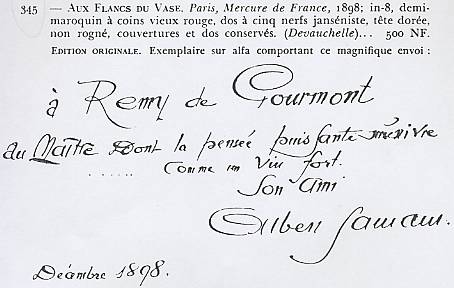 345 — AUX FLANCS DU VASE. Paris, Mercure de France, 1898; in-8, demi-
maroquin à coins vieux rouge, dos à cinq nerfs janséniste, tête dorée,
non rogné, couvertures et dos conservés. (Devauchelle)... 500 NF.
EDITION ORIGINALE. Exemplaire sur alfa comportant ce magnifique envoi :
à Remy de Gourmont
au Maître Dont la pensée puissante m'enivre
. . . . . . Comme un vin fort.
Son ami
Albert Samain.
Décembre 1898.